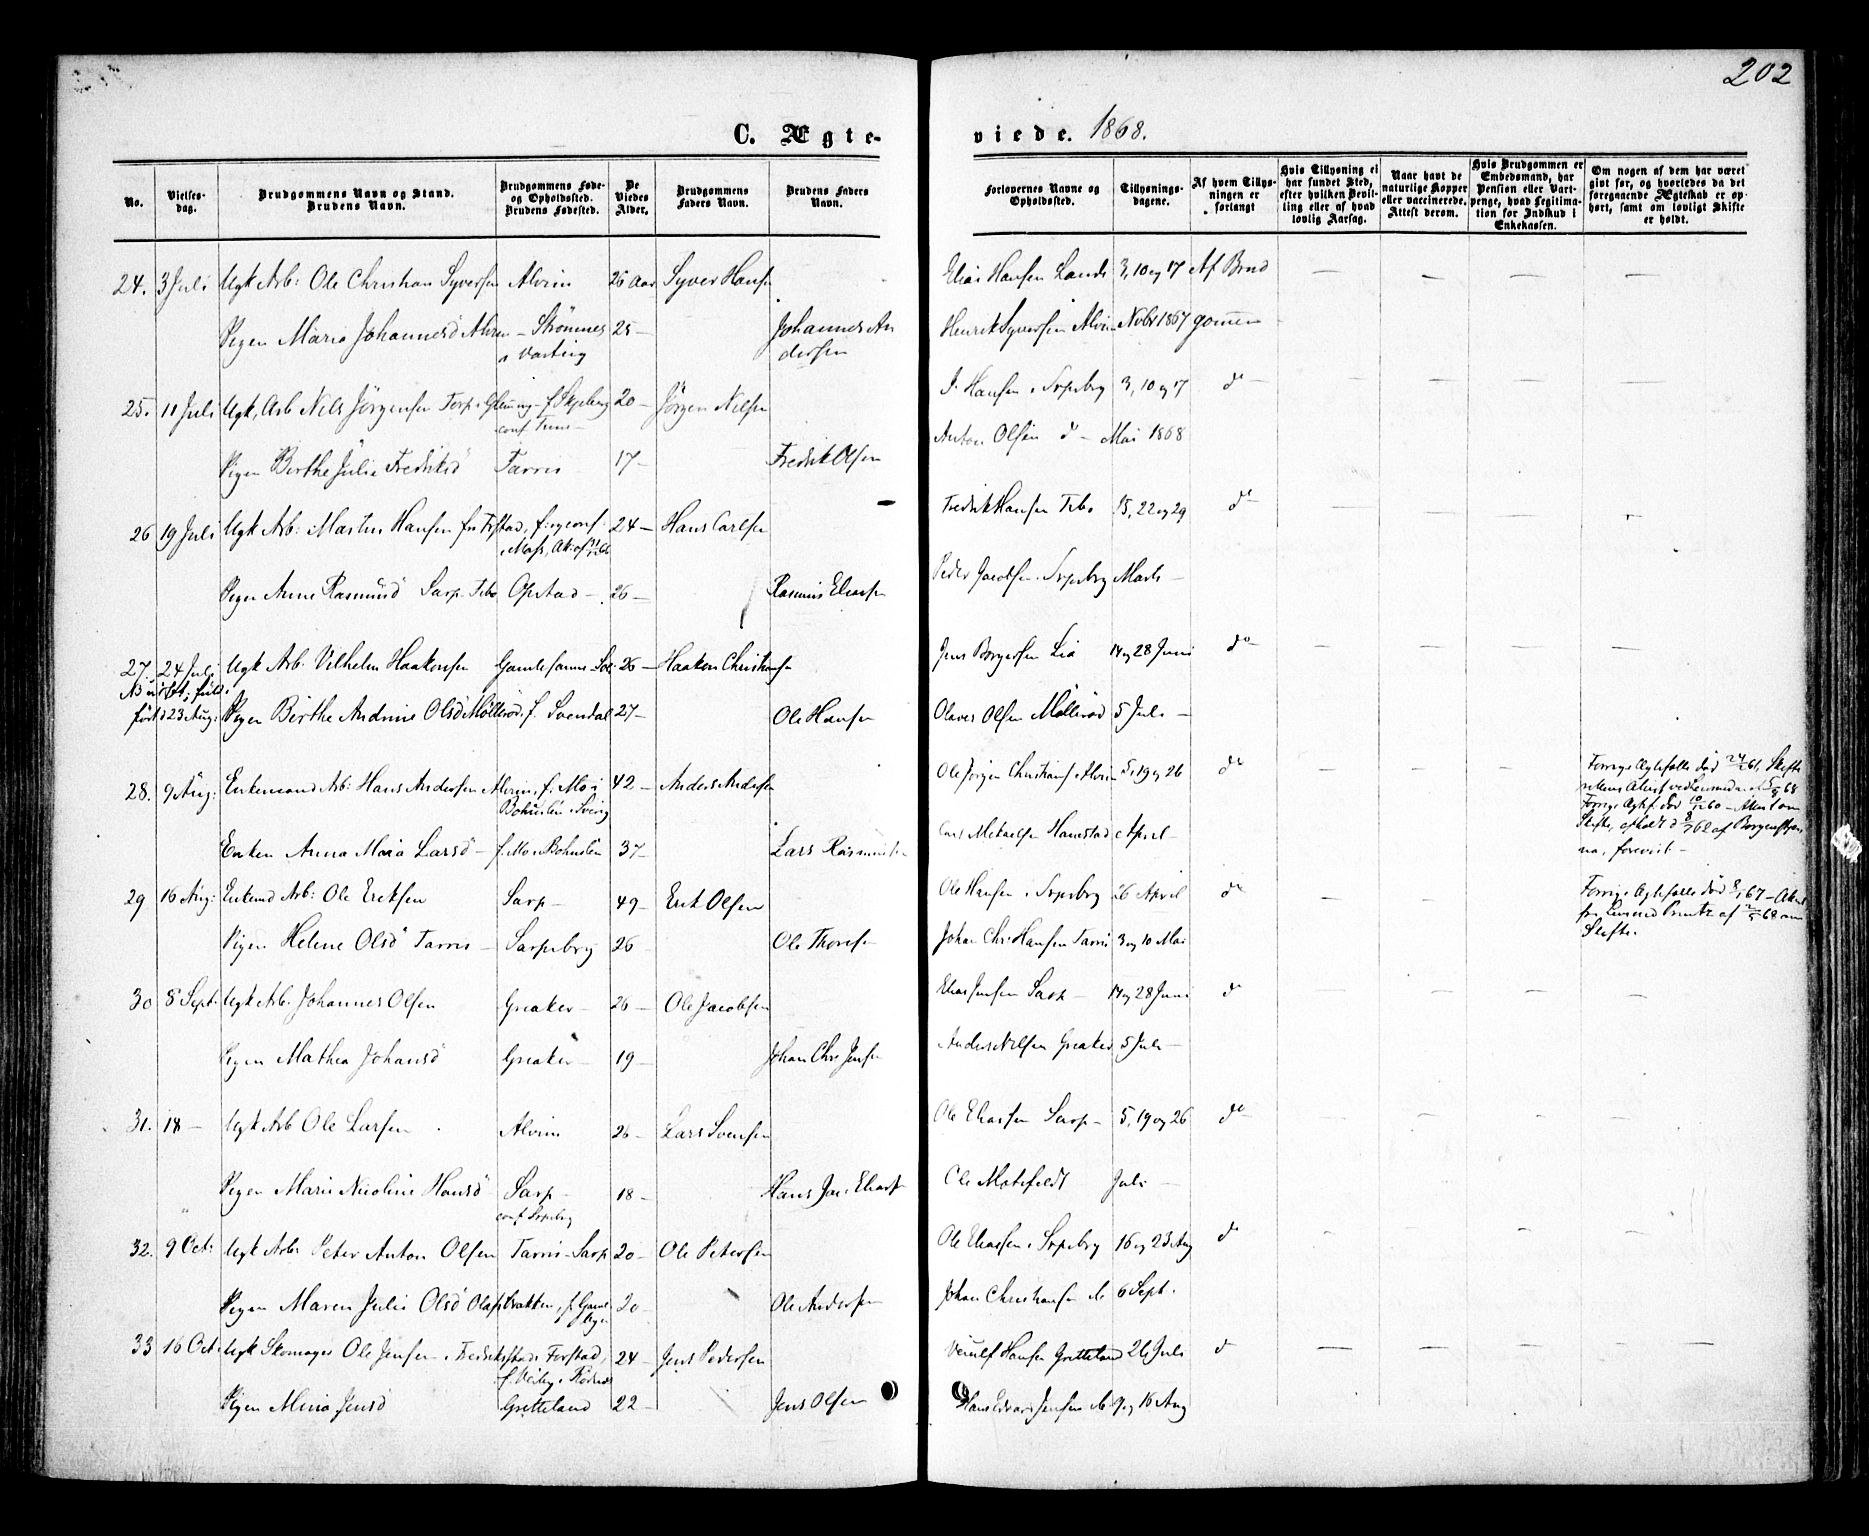 202
C. Ægte-
viede. 1868.
No.
Vielses-
dag.
Brudgommens Navn og Stand.
Brudens Navn.
Brudgommens Føde-
og Opholdssted.
Brudens Fødested.
De
Viedes
Alder.
Brudgommens
Faders Navn.
Brudens Faders
Navn.
Forlovernes Navne og
Opholdssted.
Tillysnings-
dagene.
Af hvem Tillys-
ningen er
forlangt
Hvis Tillysning ei
har fundet Sted,
efter hvilken Bevil-
ling eller af hvad
lovlig Aarsag.
Naar havt de
naturlige Kopper
eller vaccinerede.
Attest derom.
Hvis Brudgommen er
Embedsmand, har
Pension eller Vart-
penge, hvad Legitima-
tion for Indskud i
Enkekassen.
Om nogen af dem har været
gift før, og hvorledes da det
foregaaende Ægteskab er op-
hørt, samt om lovligt Skifte
er holdt.
24. 3 Juli Ugk Arb: Ole Christian Syversen Alvim 26 Aar Syver Hansen
Elias Hansen Lande 3, 10 og 17 Af Brud
Pigen Maria Johannesd Alvim - Strömnes 25 - Johannes An
i Varteig dersen
Henrik Syversen Alvim Novbr 1867 gommen
25. 11 Juli Ugk, Arb Nils Jörgensen Torp i Glemmg - f. Skjeberg 20 - Jörgen Nilsen
conf. Tune -
J. Hansen i Srpsbrg 3, 10 og 17 do
Pigen Berthe Julie Fredriksd Tarris 17 - Fredrik Olsen
Anton Olsen do - Mai 1868
26 19 Juli Ugk Arb: Martin Hansen fr. Forstad, f. og conf. 24 - Hans Carlsen
i Moss, Att. af
Fredrik Hansen Tebo 15, 22 og 29 do
Pigen Anne Rasmusd Sarp Tebo Opstad - 26 - Rasmus Eliasen
Peder Jacobsen Srpsbrg Marts -
27. 24 Juli Ugk Arb: Vilhelm Haakensen 26 - Haaken Christiansen
Jens Borgersen Lia 14 og 28 Juni do
ført d 23 Aug: Pigen Berthe Andrine Olsd Møllerød, f. Svendal 27 - Ole Hansen
Olaves Olsen Møllerød 5 Juli -
28. 9 Aug: Enkemand Arb: Hans Andersen Alvim, f. Mo i 42 - Anders Andersen
Bohuslen i Sverig
Ole Jörgen Christians. Alvim 5, 19 og 26 do
Forrige Ægtefælle død 24/2 61, Skifte
Enken Anna Maria Larsd - f. Mo i Bohuslen 37 - Lars Rasmusen
Lars Mikaelsen Hanestad April -
Forrige Ægtf. død 10/12 60 - Attest om
Skifte, afholdt d 8/7 62 af Borgensky
na, forevist -
29 16 Aug: Enkemd Arb: Ole Eriksen Sarp - 49 - Erik Olsen
Ole Hansen i Srpsbrg 26 April do
Forrige Ægtefælle død 8/1 67 - Attest
fr. Lensmd Pruntz af 2/5 68 om
Skifte.
Pigen Helene Olsd Tarris - Sarpsborg 26 - Ole Thoresen
Johan Chr. Hansen Tarris 3 og 10 Mai
30 8 Sept. Ugk Arb. Johannes Olsen Greaker - 26 - Ole Jacobsen
Elias Jensen Sarp - 14 og 28 Juni do
Pigen Mathea Johansd Greaker - 19 - Johan Chr. Jensen
Anders Nilsen Greaker 5 Juli -
31. 18 - Ugk Arb Ole Larsen Alvim 26 - Lars Svensen
Ole Eliasen Sarp - 5, 19 og 26 do
Pigen Marie Nicoline Hansd Sarp - 18 - Hans Jac: Eliasen
conf Srpsbrg
Ole Motzfeldt Juli -
32. 9 Oct: Ugk Arb: Peter Anton Olsen Tarris - Sarp 20 - Ole Petersen
Ole Eliasen i Srpsbrg 16 og 23 Aug do
Pigen Maren Julie Olsd Olafsbrakken, f. 20 - Ole Andersen
Johan Christiansen ib 6 Sept.
33 16 Oct. Ugk Skomager Ole Jensen i Fredrikstads Forstad, 24 - Jens Pedersen
Hansen Gretteland 26 Juli do
Pigen Mina Jensd Gretteland 22 - Jens Olsen
Hans Edvard Jensen ib 9 og 16 Aug